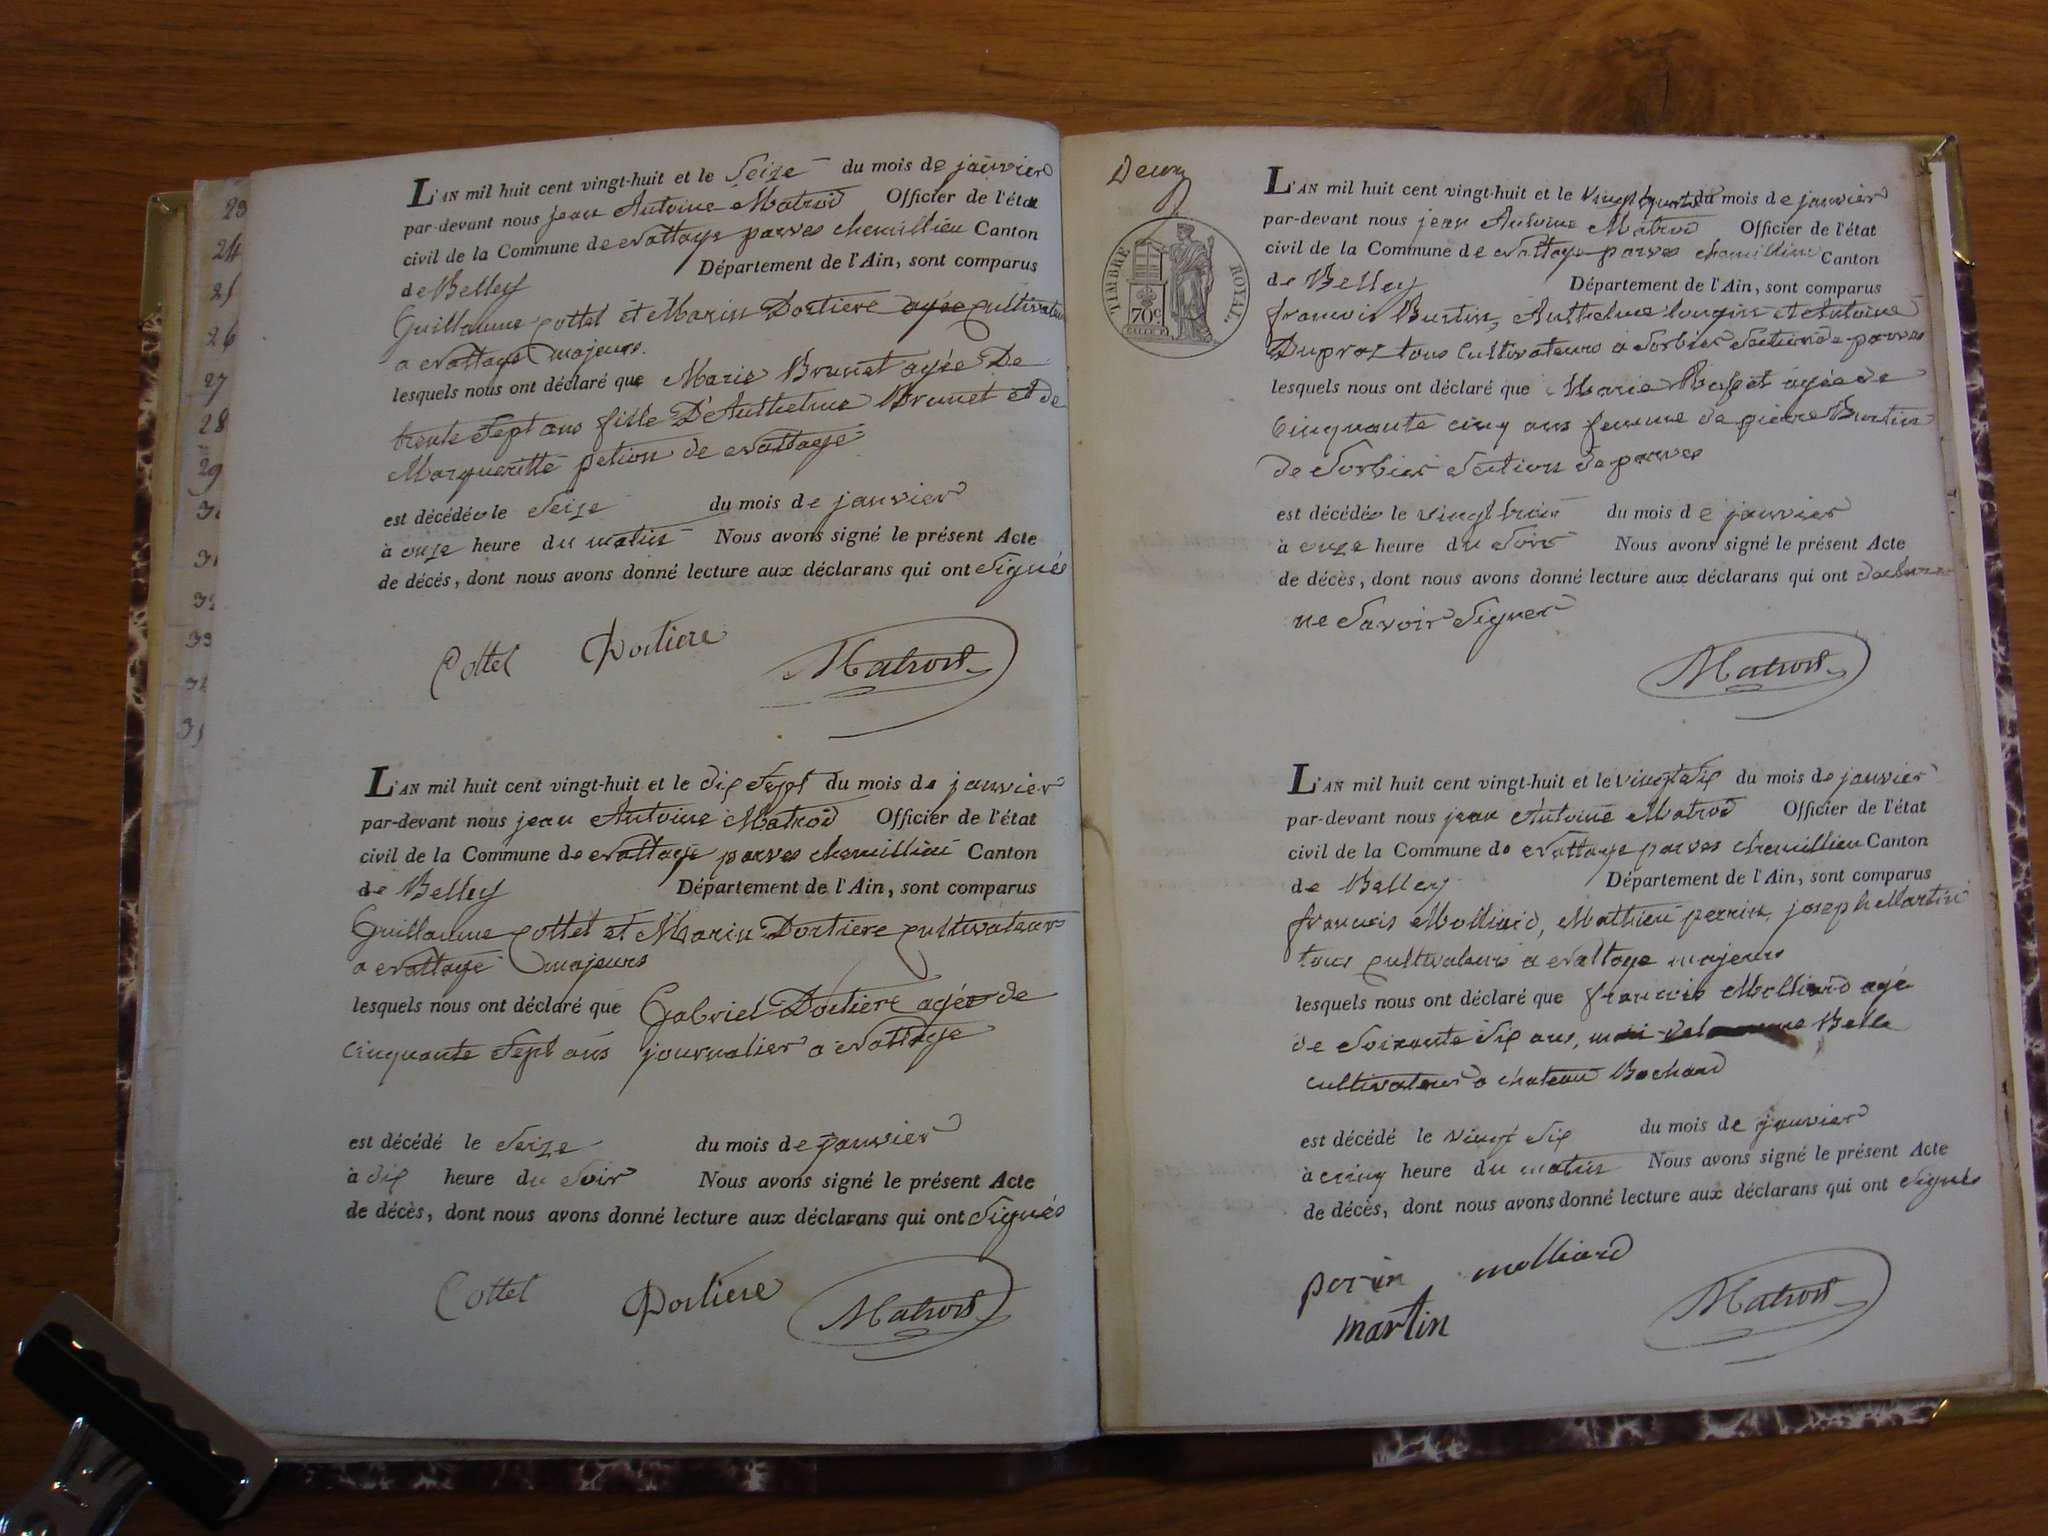 23
24
25
26
27
28
29
30
31
32
33
34
L'AN mil huit cent vingt-huit et le Seize du mois de janvier
par-devant nous jean Antoine Matrod Officier de l'état
civil de la Commune de nattage parves chemillieu Canton
de Belley Département de l'Ain, sont comparus
Guillaume Cottet et Marin Dortiere agée cultivateurs
a nattage majeurs.
lesquels nous ont déclaré que Marie Brunet agée De
trente Sept ans fille D'Anthelme Brunet et de
Margueritte petion de nattage
est décédée le Seize du mois de janvier
à onze heure du matin Nous avons signé le présent Acte
de décés, dont nous avons donné lecture aux déclarans qui ont Signés
Cottet Dortiere Matrod
L'AN mil huit cent vingt-huit et le dix Sept du mois de janvier
par-devant nous jean Antoine Matrod Officier de l'état
civil de la Commune de nattage parves chemillieu Canton
de Belley Département de l'Ain, sont comparus
Guillaume Cottet et Marin Dortiere cultivateurs
a nattage majeurs
lesquels nous ont déclaré que Gabriel Dortiere agée de
cinquante Sept ans journalier a nattage
est décédé le Seize du mois de janvier
à dix heure du Soir Nous avons signé le présent Acte
de décès, dont nous avons donné lecture aux déclarans qui ont Signés
Cottet Dortiere Matrod
Deux
TIMBRE ROYAL.
70c
L'AN mil huit cent vingt-huit et le vingt quatre du mois de janvier
par-devant nous jean Antoine Matrod Officier de l'état
civil de la Commune de nattage parves chemillieu Canton
de Belley Département de l'Ain, sont comparus
francois Burtin, Anthelme et Antoine
Dupraz tous Cultivateurs a Sorbier Section de parves
lesquels nous ont déclaré que Marie agée de
Cinquante cinq ans femme de pierre Burtin
de Sorbier Section de parves
est décédée le vingt trois du mois de janvier
à onze heure du Soir Nous avons signé le présent Acte
de décès, dont nous avons donné lecture aux déclarans qui ont
ne Savoir Signer
Matrod
L'AN mil huit cent vingt-huit et le vingt Six du mois de janvier
par-devant nous jean Antoine Matrod Officier de l'état
civil de la Commune de nattage parves chemillieu Canton
de Belley Département de l'Ain, sont comparus
francois Molliard, Mathieu perrin, joseph Martin
tous cultivateurs a nattage majeurs
lesquels nous ont déclaré que francois Molliard agé
de Soixante Six ans,
cultivateur a chateau Bochard
est décédé le vingt Six du mois de janvier
à cinq heure du matin Nous avons signé le présent Acte
de décès, dont nous avons donné lecture aux déclarans qui ont Signés
perin molliard
martin Matrod